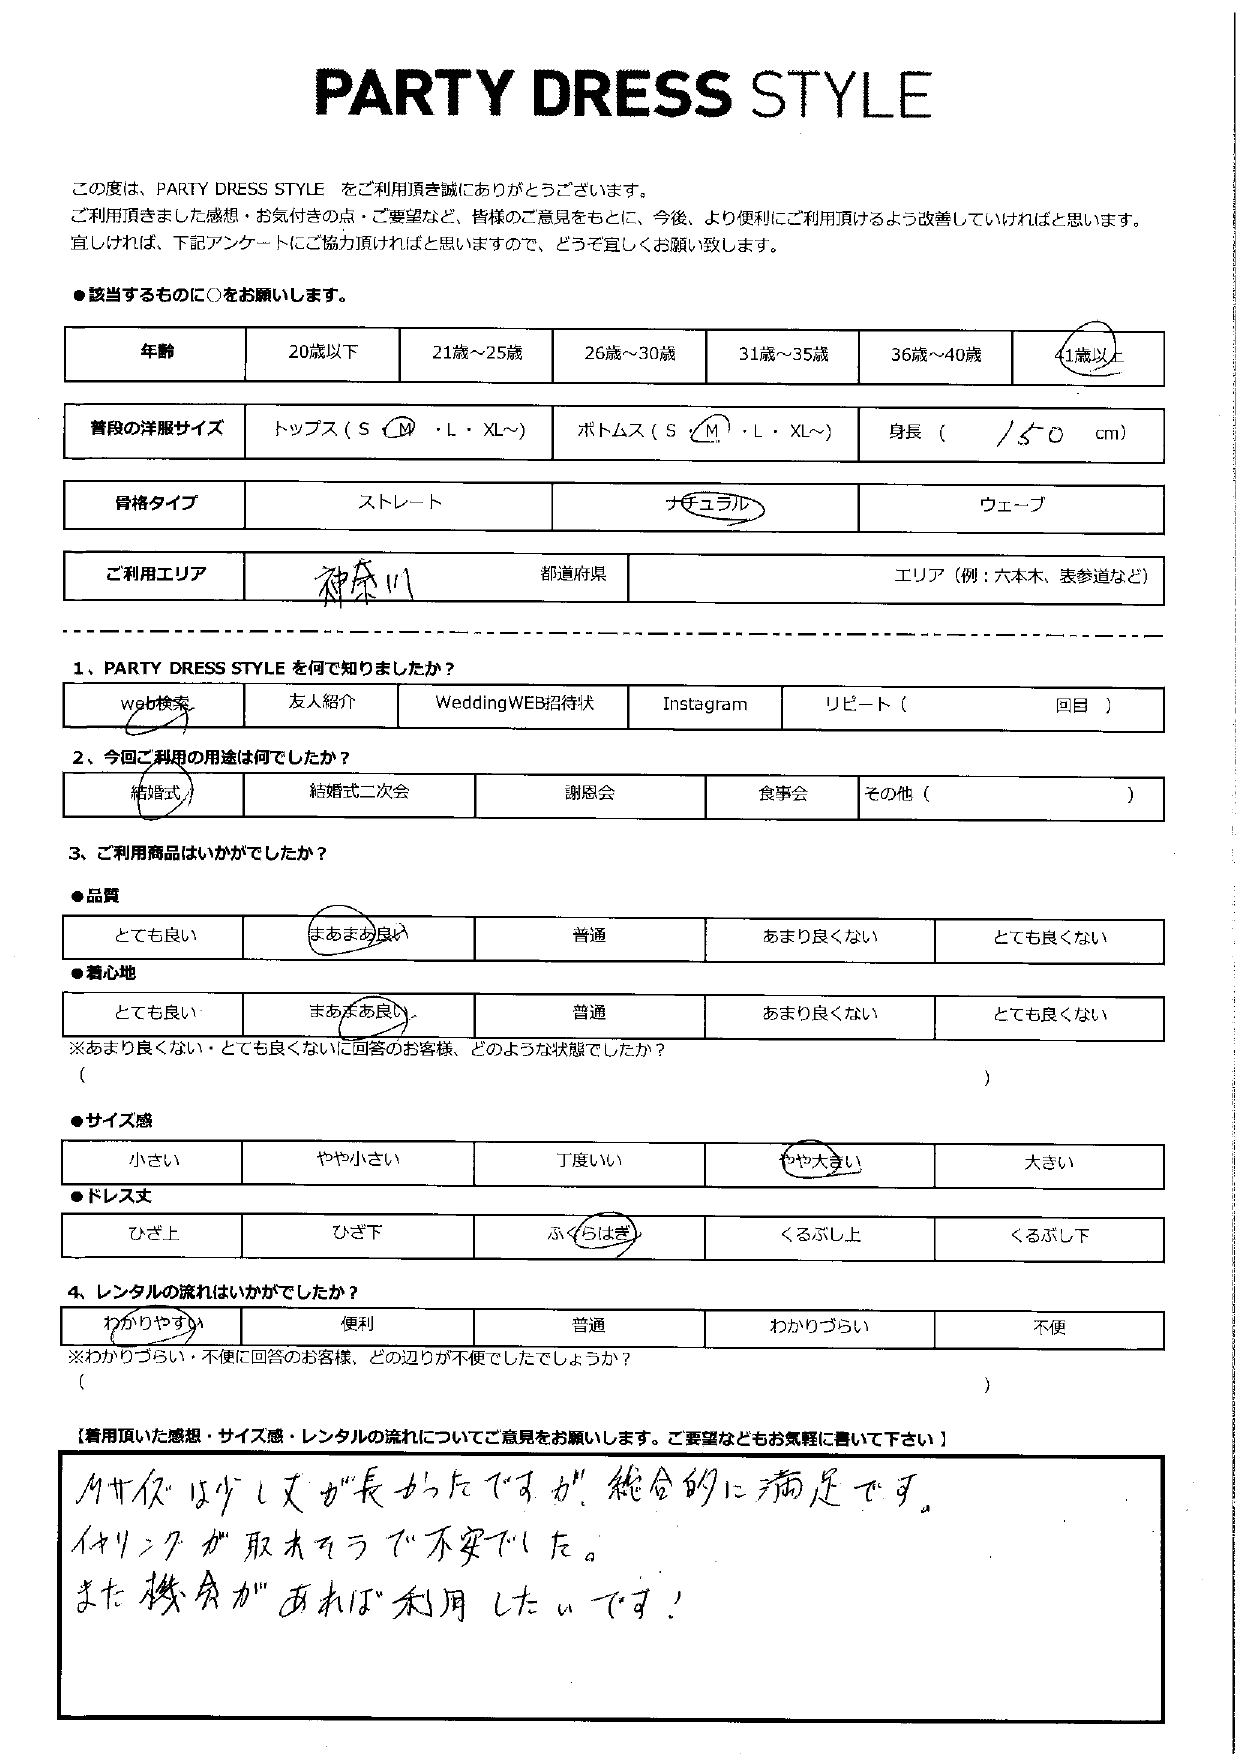 PARTY DRESS STYLE
この度は、PARTY DRESS STYLE をご利用頂き誠にありがとうございます。
ご利用頂きました感想・お気付きの点・ご要望など、皆様のご意見をもとに、今後、より便利にご利用頂けるよう改善していければと思います。
宜しければ、下記アンケートにご協力頂ければと思いますので、どうぞ宜しくお願い致します。
●該当するものに○をお願いします。
年齢 20歳以下 21歳～25歳 26歳～30歳 31歳～35歳 36歳～40歳 41歳以上
普段の洋服サイズ トップス ( S ・ M ・ L ・ XL～) ボトムス ( S ・ M ・ L ・ XL～) 身長 ( 150 cm)
骨格タイプ ストレート ナチュラル ウェーブ
ご利用エリア 神奈川 都道府県 エリア（例：六本木、表参道など）
1、PARTY DRESS STYLE を何で知りましたか？
web検索 友人紹介 WeddingWEB招待状 Instagram リピート ( 回目 )
2、今回ご利用の用途は何でしたか？
結婚式 結婚式二次会 謝恩会 食事会 その他 ( )
3、ご利用商品はいかがでしたか？
●品質
とても良い まあまあ良い 普通 あまり良くない とても良くない
●着心地
とても良い まあまあ良い 普通 あまり良くない とても良くない
※あまり良くない・とても良くないに回答のお客様、どのような状態でしたか？
( )
●サイズ感
小さい やや小さい 丁度いい やや大きい 大きい
●ドレス丈
ひざ上 ひざ下 ふくらはぎ くるぶし上 くるぶし下
4、レンタルの流れはいかがでしたか？
わかりやすい 便利 普通 わかりづらい 不便
※わかりづらい・不便に回答のお客様、どの辺りが不便でしたでしょうか？
( )
【着用頂いた感想・サイズ感・レンタルの流れについてご意見をお願いします。ご要望などもお気軽に書いて下さい】
Mサイズは少し丈が長かったですが、総合的に満足です。
イヤリングが取れそうで不安でした。
また機会があれば利用したいです!